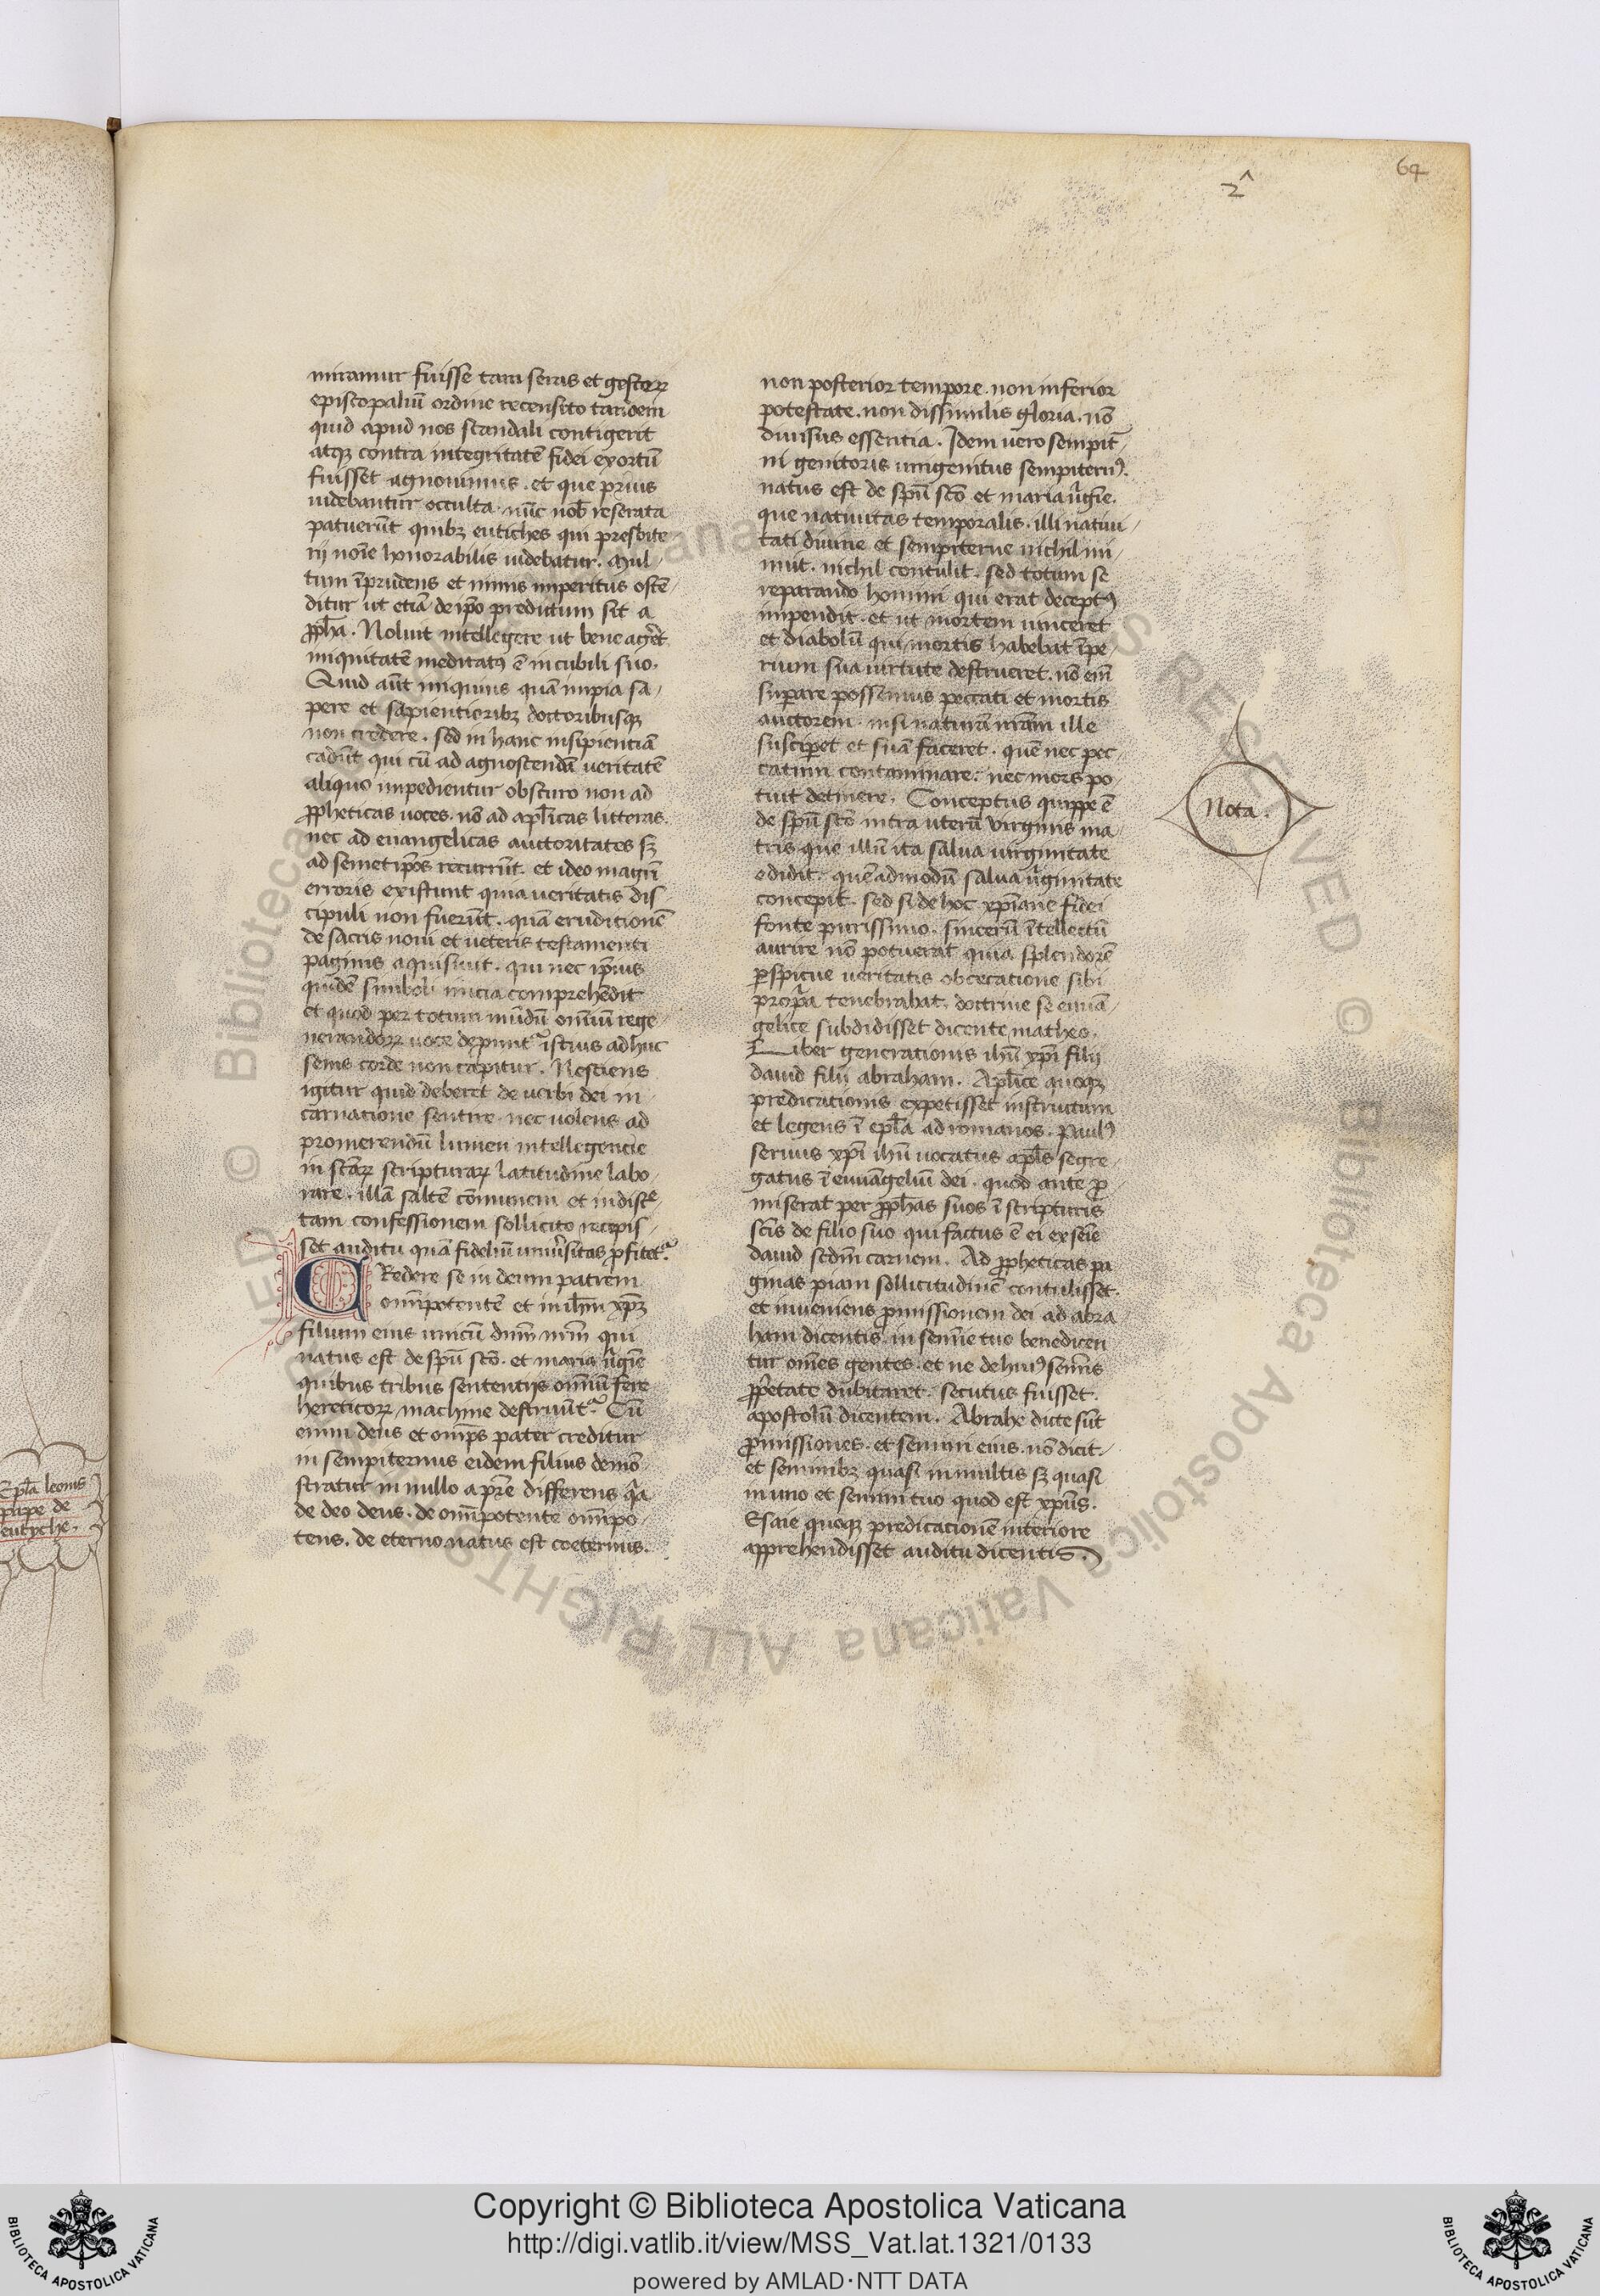 64
2^
miramur fuisse tam seras et gestoꝝ
episcopaliū ordine recensito tandem
quid apud nos scandali contigerit
atqꝫ contra integritatē fidei exortū
fuisset agnouimus . et que prius
uidebantur occulta . nūc nob̄ reserata
patuerūt quibꝫ eutiches qui presbite
rij noīe honorabilis uidebatur . Mul-
tum īprudens et nimis imperitus ostē-
ditur ut etiā de ip̄o predictum sit a
ꝓph̄a . Noluit intellegere ut bene ageret
iniquitatē meditatꝰ ē in cubili suo .
Quid aūt iniquius quā impia sa-
pere et sapientioribꝫ doctoribusqꝫ
non credere . sed in hanc insipientiā
cadūt qui cū ad agnoscendā ueritatē
aliquo impedientur obscuro non ad
ꝓpheticas uoces . nō ad apl̄icas litteras .
nec ad euangelicas auctoritates sꝫ
ad semetip̄os recurrūt . et ideo magrī
erroris existunt quia ueritatis dis
cipuli non fuerūt . quā eruditionē
de sacris noui et ueteris testamenti
paginis aquisiuit . qui nec ip̄ius
quidē simboli inicia comprehēdit
et quod per totum mūdū omniū rege-
nerandoꝝ uoce depunt᷑ istius adhuc
senis corde non capitur . Nesciens
igitur quid deberet de uerbi dei in-
carnatione sentire . nec uolens ad
promerendū lumen intellegencie
in sc̄aꝝ scripturaꝝ latitudine labo-
rare . illā saltē cōmunem et indiscre
tam confessionem sollicito recepis-
set auditu quā fidelium uniuersitas ꝓfitet᷑ .
CRedere se in deum patrem
omīpotentē et in ih̄m xp̄ꝫ
filium eius unicū dn̄m nr̄m qui
natus est de spū sc̄o . et maria uīgīe
quibus tribus sententijs omniū fere
hereticoꝝ machine destruūt᷑ . Cū
enim deus et omīps pater creditur
in sempiternus eidem filius demō-
stratur in nullo a pr̄e differens qa
de deo deus . de omīpotente omīpo-
tens . de eterno natus est coeternus .
non posterior tempore . non inferior
potestate . non dissimilis gloria . nō
diuisus essentia . Idem uero sempit̄-
ni genitoris unigenitus sempiternꝰ .
natus est de spū sc̄o et maria uīgīe .
que natiuitas temporalis . illi natiui-
tati diuine et sempiterne nichil mi-
nuit . nichil contulit . sed totum se
reparando homini qui erat deceptꝰ
impendit . et ut mortem uinceret
et diabolū qui mortis habebat īpe-
rium sua uirtute destrueret . nō em̄
supare possemus peccati et mortis
auctorem . nisi naturā nr̄am ille
susciperet et suā faceret . quē nec pec
catum contaminare . nec mors po-
tuit detinere . Conceptus quippe ē
de spū sc̄o intra uterū virginis ma-
tris que illū ita salua uirginitate
edidit . quēadmodū salua uīginitate
concepit . sed si de hoc xp̄iane fidei
fonte purissimo . sincerū ītellectū
aurire nō potuerat quia splendorē
ꝑspicue ueritatis obcecatione sibi
propria tenebrabat . doctrine se euuā-
gelice subdidisset dicente matheo .
Liber generationis ih̄u xp̄i filij
dauid filij abraham . Apl̄ice quoqꝫ
predicationis expetisset instructum
et legens ī epl̄a ad romanos . Paulꝰ
seruus xp̄i ih̄u uocatus apl̄s segre-
gatus ī euuāgeliū dei . quod ante ꝓ-
miserat per ꝓph̄as suos ī scripturis
sc̄is de filio suo qui factus ē ei ex seīe
dauid scdm̄ carnem . Ad ꝓpheticas pa
ginas piam sollicitudinē contulisset .
et inueniens ꝓmissionem dei ad abra
ham dicentis . in semīe tuo benedicen
tur omēs gentes . et ne de huiꝰ semīs
ꝓp̄etate dubitaret . secutus fuisset .
apostolū dicentem . Abrahe dicte sūt
ꝓmissiones . et semini eius . nō dicit-
et seminibꝫ quasi in multis sꝫ quasi
in uno et semini tuo quod est xp̄us .
Esaie quoqꝫ predicationē interiore
apprehendisset auditu dicentis .
Nota .
Epl̄a leonis
pape de
eutyche .
© Biblioteca Apostolica Vaticana ALL RIGHTS RESERVED © Biblioteca Apostolica Vaticana ALL RIGHTS RESERVED
Copyright © Biblioteca Apostolica Vaticana
http://digi.vatlib.it/view/MSS_Vat.lat.1321/0133
powered by AMLAD·NTT DATA
BIBLIOTECA APOSTOLICA VATICANA
BIBLIOTECA APOSTOLICA VATICANA